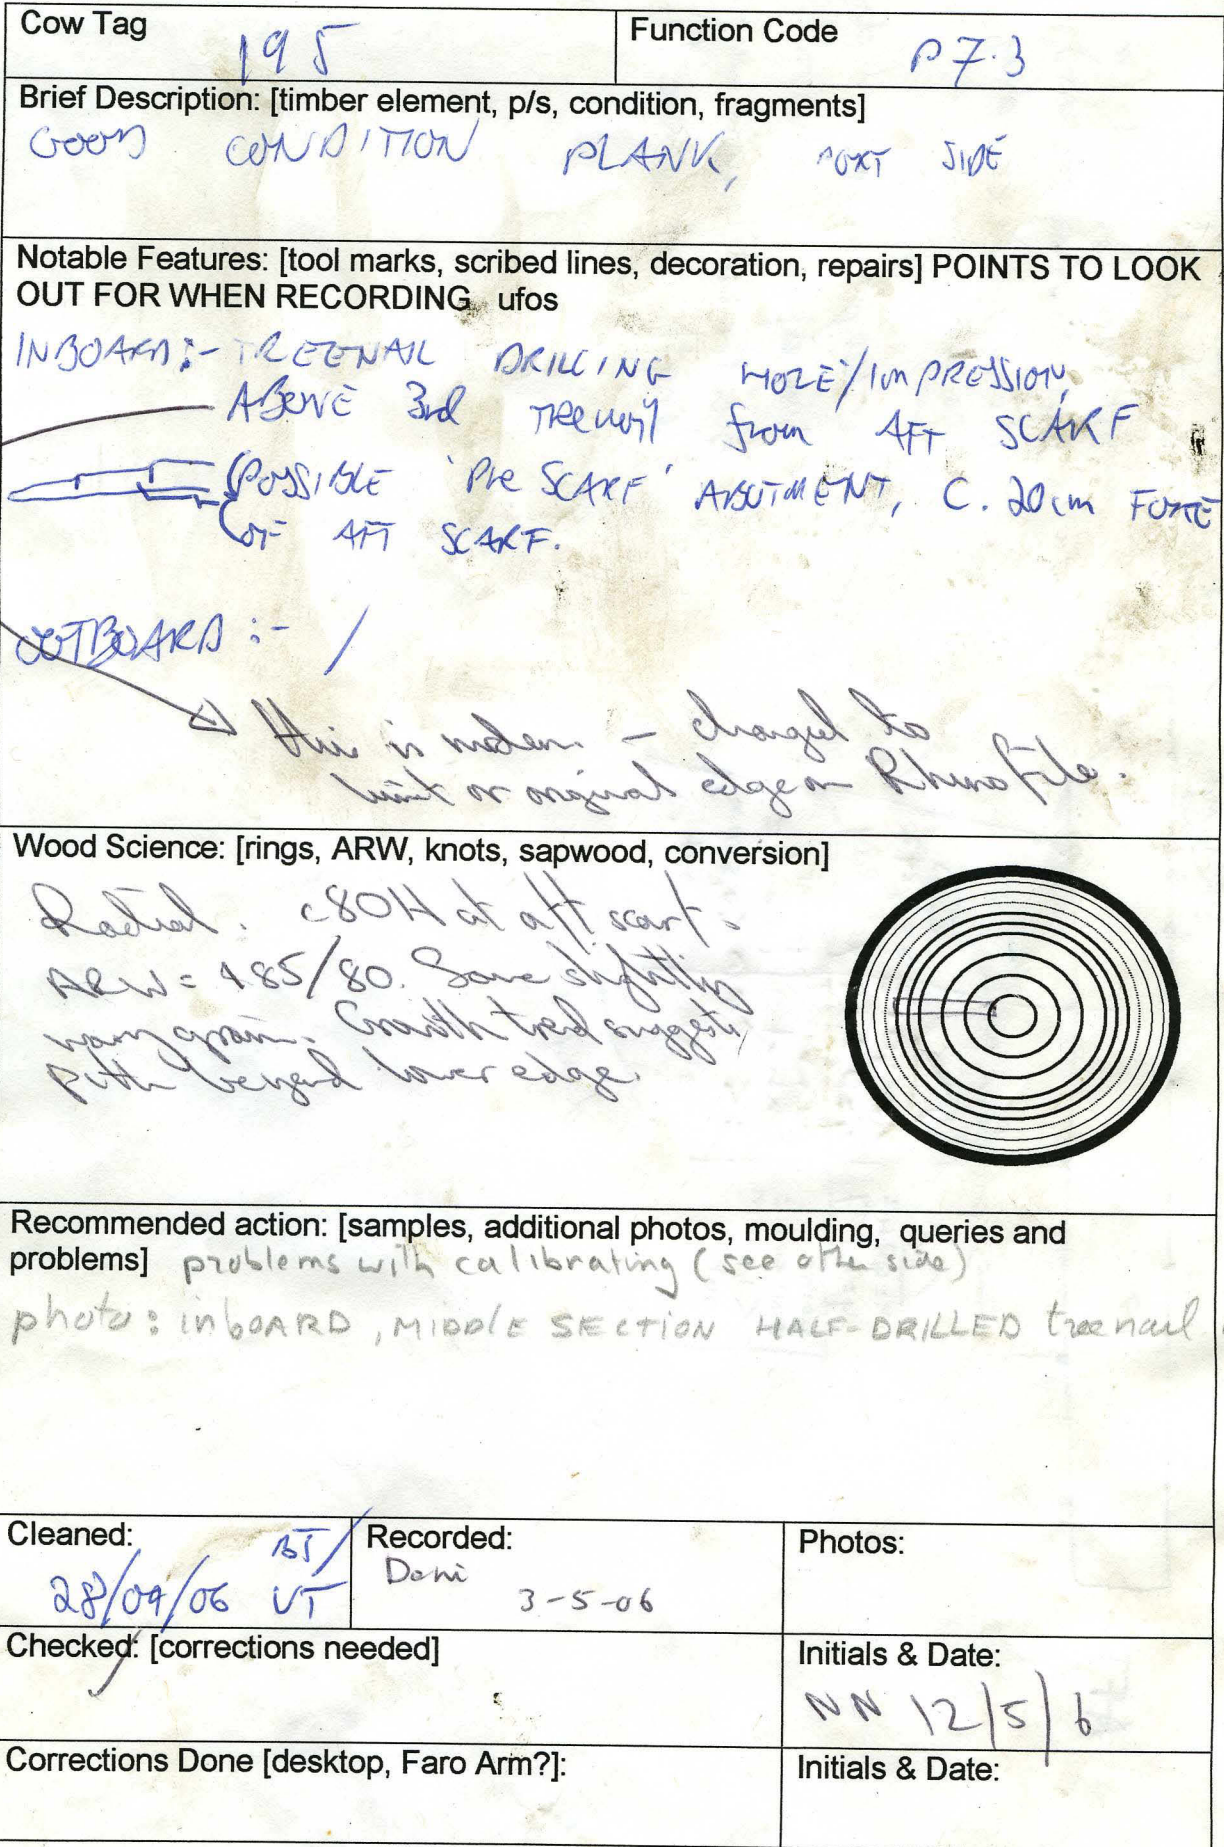 Cow Tag 195
Function Code P7.3
Brief Description: [timber element, p/s, condition, fragments]
GOOD CONDITION PLANK, PORT SIDE
Notable Features: [tool marks, scribed lines, decoration, repairs] POINTS TO LOOK
OUT FOR WHEN RECORDING ufos
INBOARD:- TREENAIL DRILLING HOLE/IMPRESSION,
ABOVE 3rd Treenail from AFT SCARF
POSSIBLE 'Pre SCARF' ABUTMENT, C. 20cm FORE
OF AFT SCARF.
OUTBOARD :- /
this is modern - changed to
limit or original edge on Rhino file.
Wood Science: [rings, ARW, knots, sapwood, conversion]
Radial. c80H at aft scarf.
ARW = 185/80. Some slightly
wavy grain. Growth trend suggests
pith beyond lower edge.
Recommended action: [samples, additional photos, moulding, queries and
problems] problems with calibrating (see other side)
photo: inBOARD, MIDDLE SECTION HALF-DRILLED treenail
Cleaned: BT/
28/04/06 VT
Recorded:
Dani
3-5-06
Photos:
Checked: [corrections needed]
Initials & Date:
NN 12/5/6
Corrections Done [desktop, Faro Arm?]:
Initials & Date: